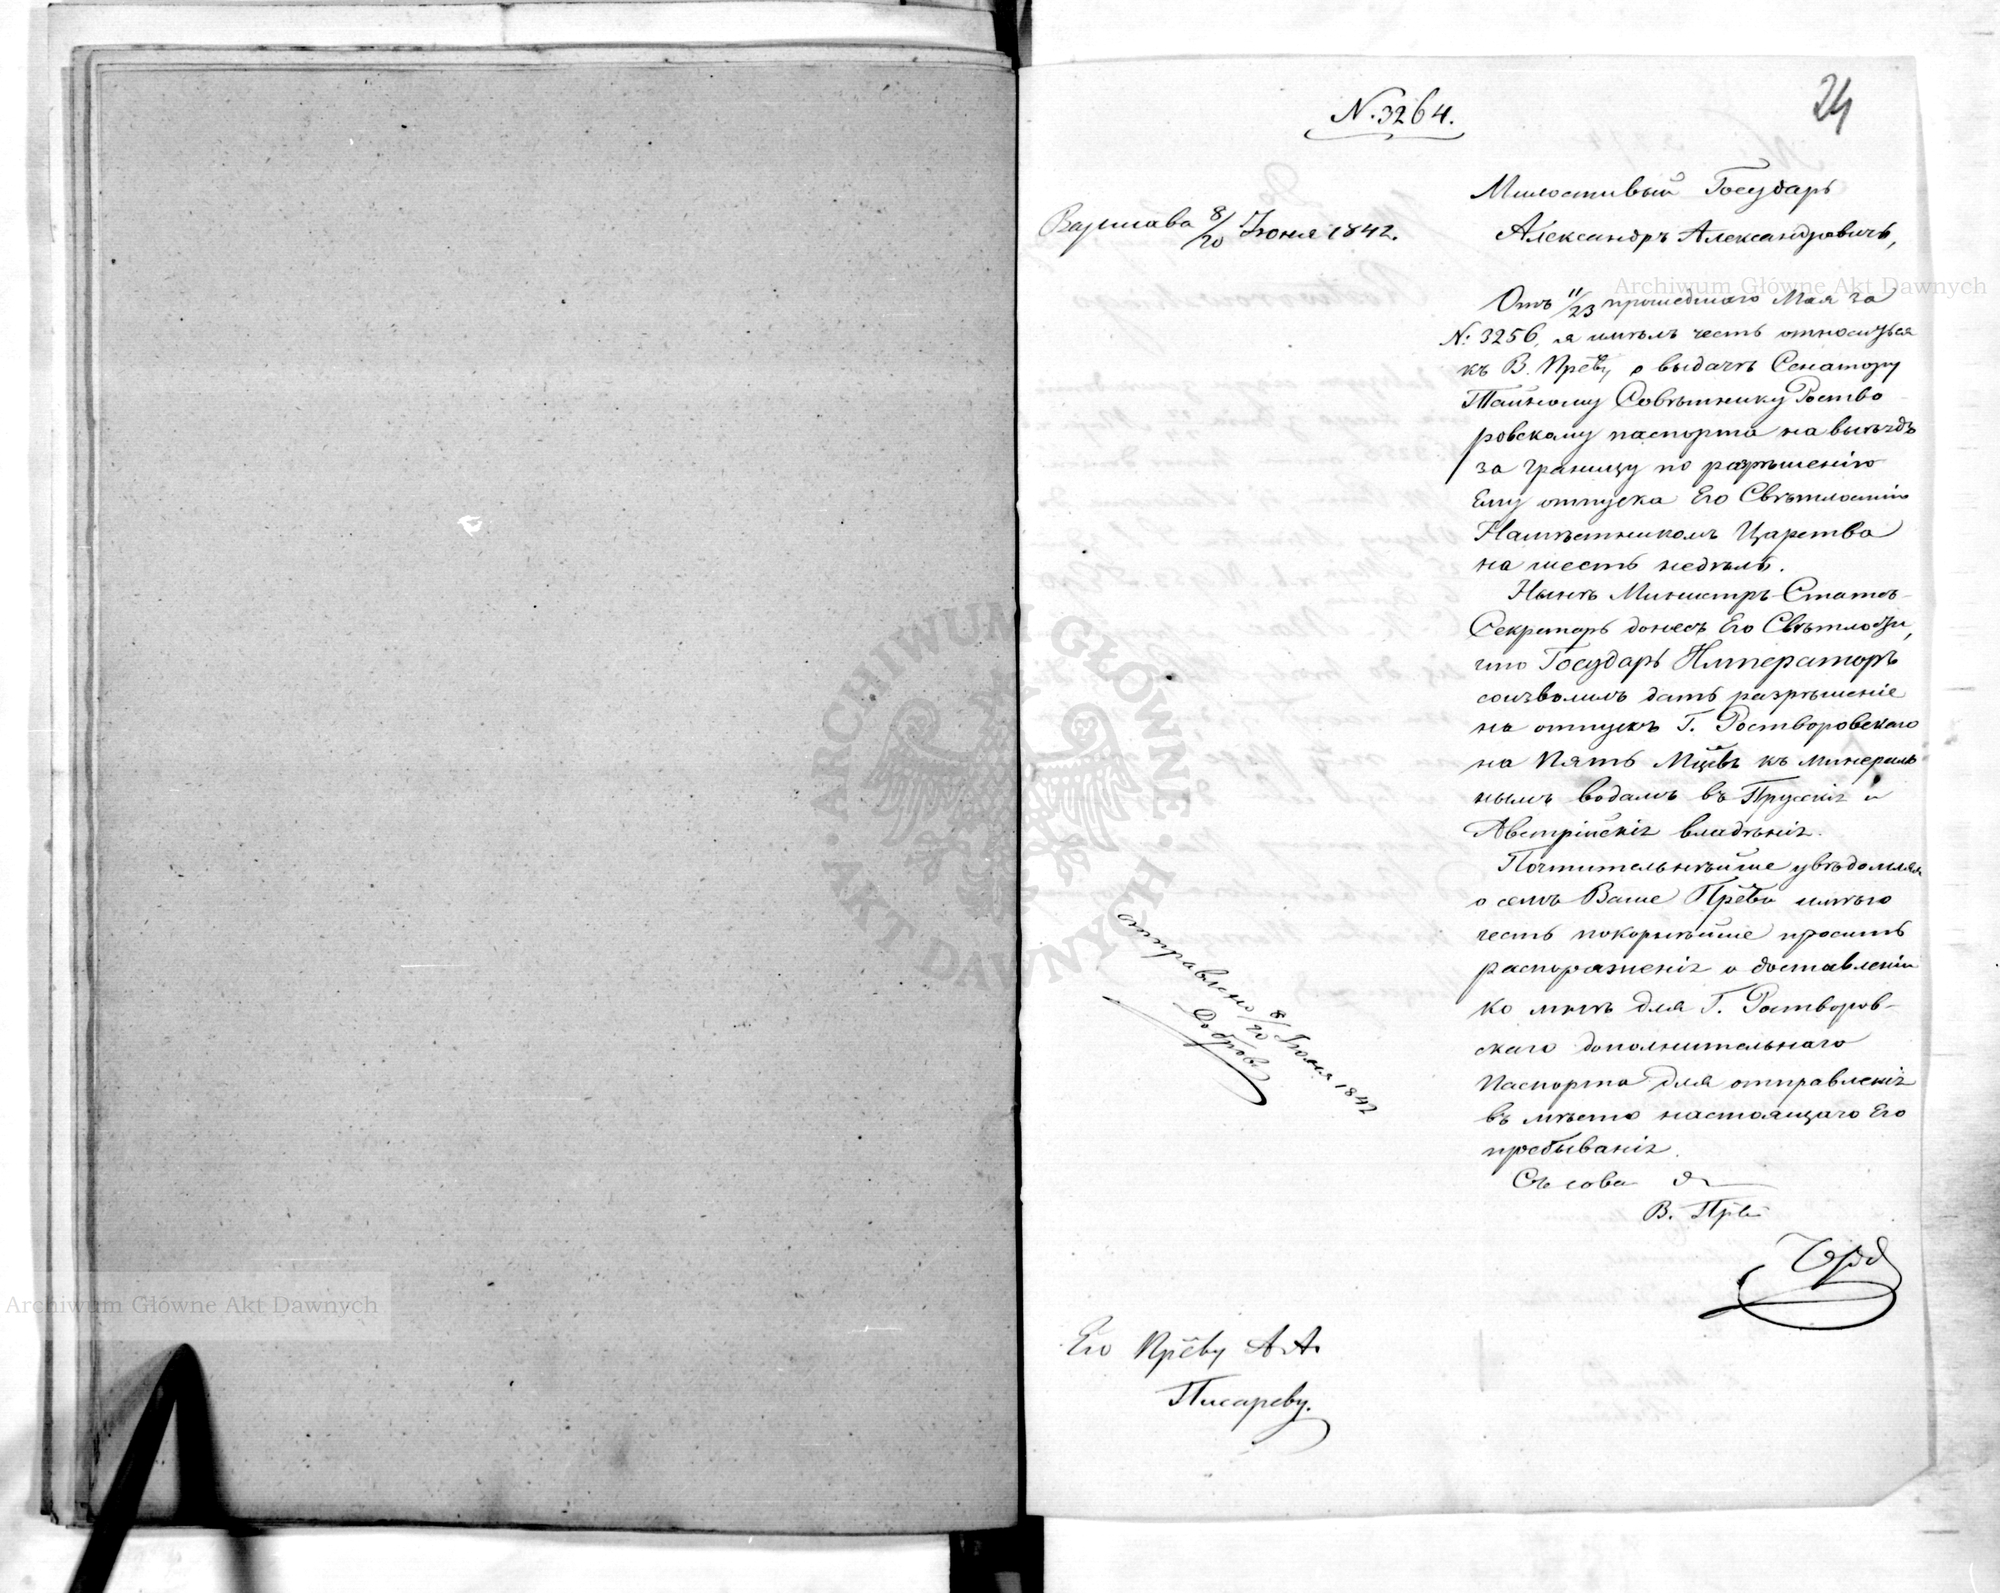 24
N. 3264.
Милостивый Государь
Варшава 8/20 Іюня 1842.
Александръ Александровичъ,
Отъ 11/23 прошедшаго Мая за
N: 3256, я имѣлъ честь относиться
къ В. Прев͠у, о выдачѣ Сенатору
Тайному Совѣтнику Роство
ровскому паспорта на выѣздъ
за границу по разрѣшенію
Ему отпуска Его Свѣтлостію
Намѣстникомъ Царства
на шесть недѣль.
Нынѣ Министръ Статсъ-
Секретарь донесъ Его Свѣтлости,
что Государь Императоръ
соизволилъ дать разрѣшеніе
на отпускъ Г. Растворовскаго
на Пять Мцвъ къ минераль
нымъ водамъ въ Прусскія и
Австрійскія владѣнія.
Почтительнѣйше увѣдомляя
о семъ Ваше Прев͠о имѣю
честь покорнѣйше просить
распоряженія о доставленіи
ко мнѣ для Г. Растворов-
скаго дополнительнаго
Паспорта для отправленія
въ мѣсто настоящаго Его
пребыванія.
Съ сове
В. Прев
отправлено 8/20 Іюня 1842
Добров
Его Прев͠у А. А.
Писареву.
ARCHIWUM GŁÓWNE AKT DAWNYCH
Archiwum Główne Akt Dawnych
Archiwum Główne Akt Dawnych